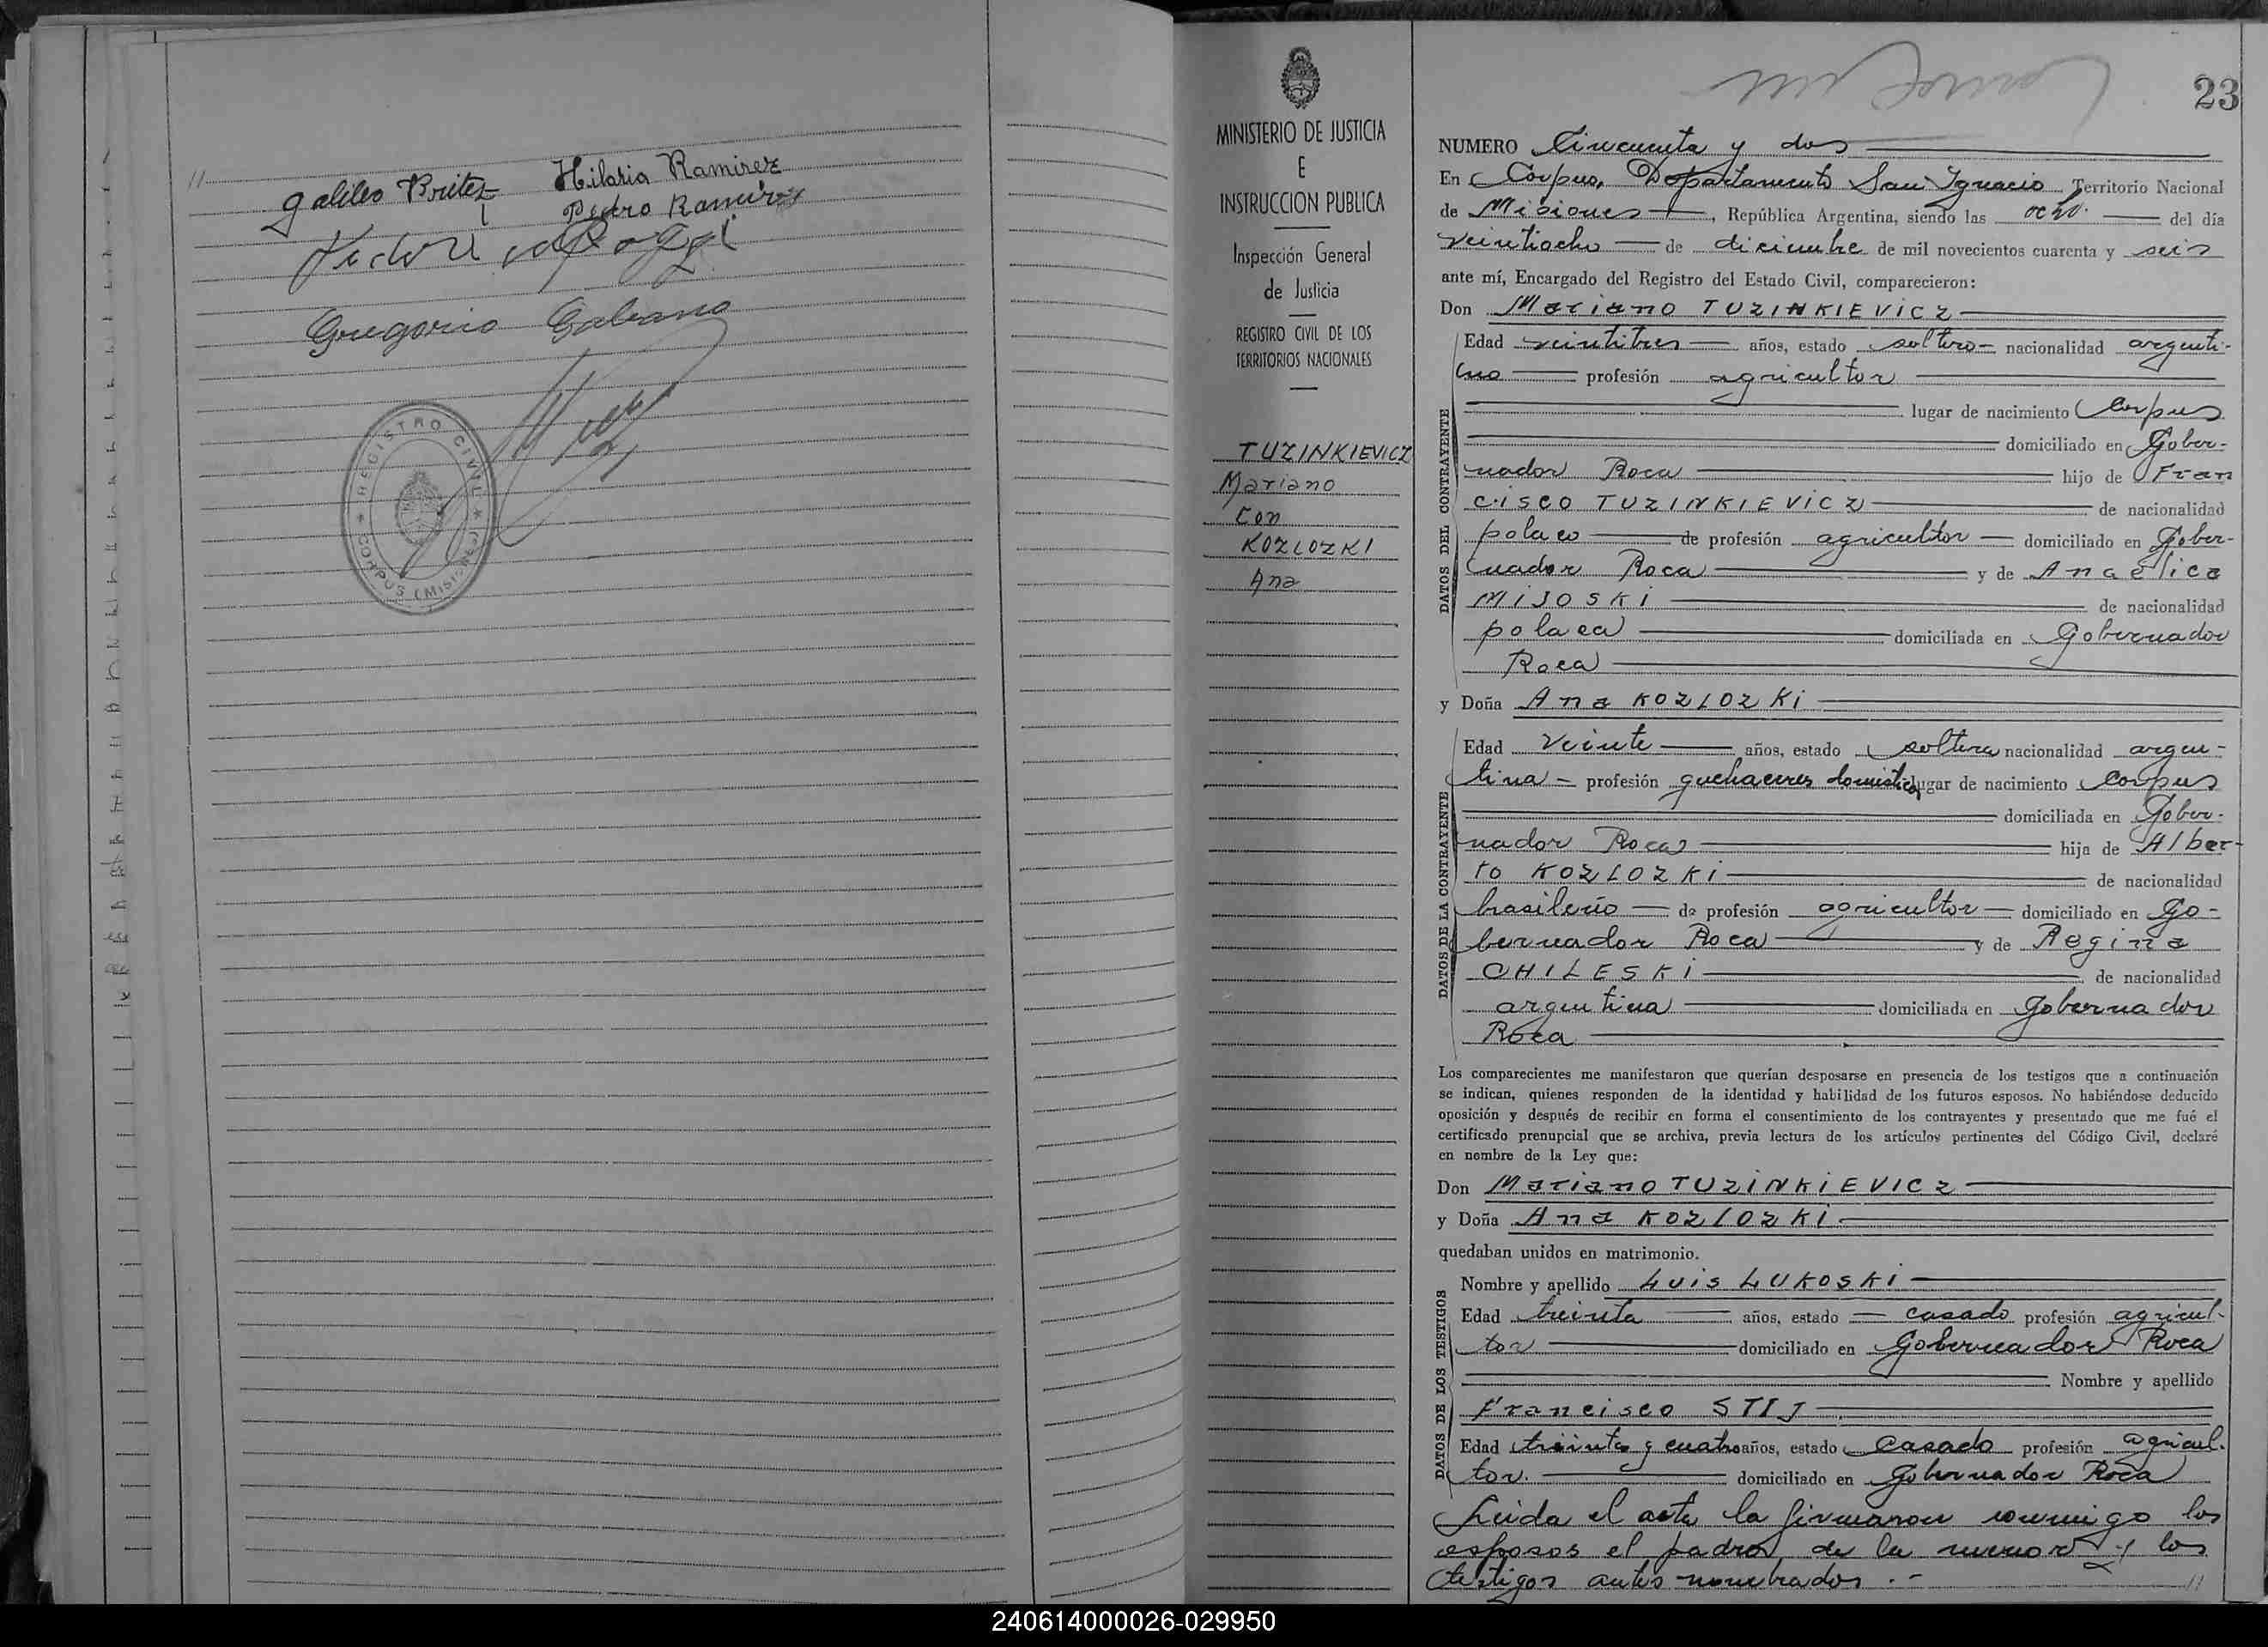 11
Galileo Britez Hilaria Ramirez
Pedro Ramirez
Gregorio Galeano
REGISTRO CIVIL
CORPUS (Misiones)
23
MINISTERIO DE JUSTICIA
E
INSTRUCCION PUBLICA
Inspección General
de Justicia
REGISTRO CIVIL DE LOS
TERRITORIOS NACIONALES
TUZINKIEVICZ
Mariano
con
KOZLOZKI
Ana
NUMERO Cincuenta y dos
En Corpus, Departamento San Ignacio Territorio Nacional
de Misiones, República Argentina, siendo las ocho del día
veintiocho de diciembre de mil novecientos cuarenta y seis
ante mí, Encargado del Registro del Estado Civil, comparecieron:
Don Mariano TUZINKIEVICZ
DATOS DEL CONTRAYENTE
Edad veintitres años, estado soltero nacionalidad argenti-
no profesión agricultor
lugar de nacimiento Corpus
domiciliado en Gober-
nador Roca hijo de Fran
cisco TUZINKIEVICZ de nacionalidad
polaco de profesión agricultor domiciliado en Gober-
nador Roca y de Angelica
MIJOSKI de nacionalidad
polaca domiciliada en Gobernador
Roca
y Doña Ana KOZLOZKI
DATOS DE LA CONTRAYENTE
Edad Veinte años, estado soltera nacionalidad argen-
tina - profesión quehaceres domésticos lugar de nacimiento Corpus
domiciliada en Gober-
nador Roca hija de Alber-
to KOZLOZKI de nacionalidad
brasileño de profesión agricultor domiciliado en Go-
bernador Roca y de Regina
CHILESKI de nacionalidad
argentina domiciliada en Gobernador
Roca
Los comparecientes me manifestaron que querían desposarse en presencia de los testigos que a continuación
se indican, quienes responden de la identidad y habilidad de los futuros esposos. No habiéndose deducido
oposición y después de recibir en forma el consentimiento de los contrayentes y presentado que me fué el
certificado prenupcial que se archiva, previa lectura de los artículos pertinentes del Código Civil, declaré
en nombre de la Ley que:
Don Mariano TUZINKIEVICZ
y Doña Ana KOZLOZKI
quedaban unidos en matrimonio.
DATOS DE LOS TESTIGOS
Nombre y apellido Luis LUKOSKI
Edad treinta años, estado casado profesión agricul-
tor domiciliado en Gobernador Roca
Nombre y apellido
Francisco STIJ
Edad treinta y cuatro años, estado Casado profesión agricul-
tor. domiciliado en Gobernador Roca
Leida el acta la firmaron conmigo los
esposos el padre de la menor y los
testigos antes nombrados.-
11
240614000026-029950